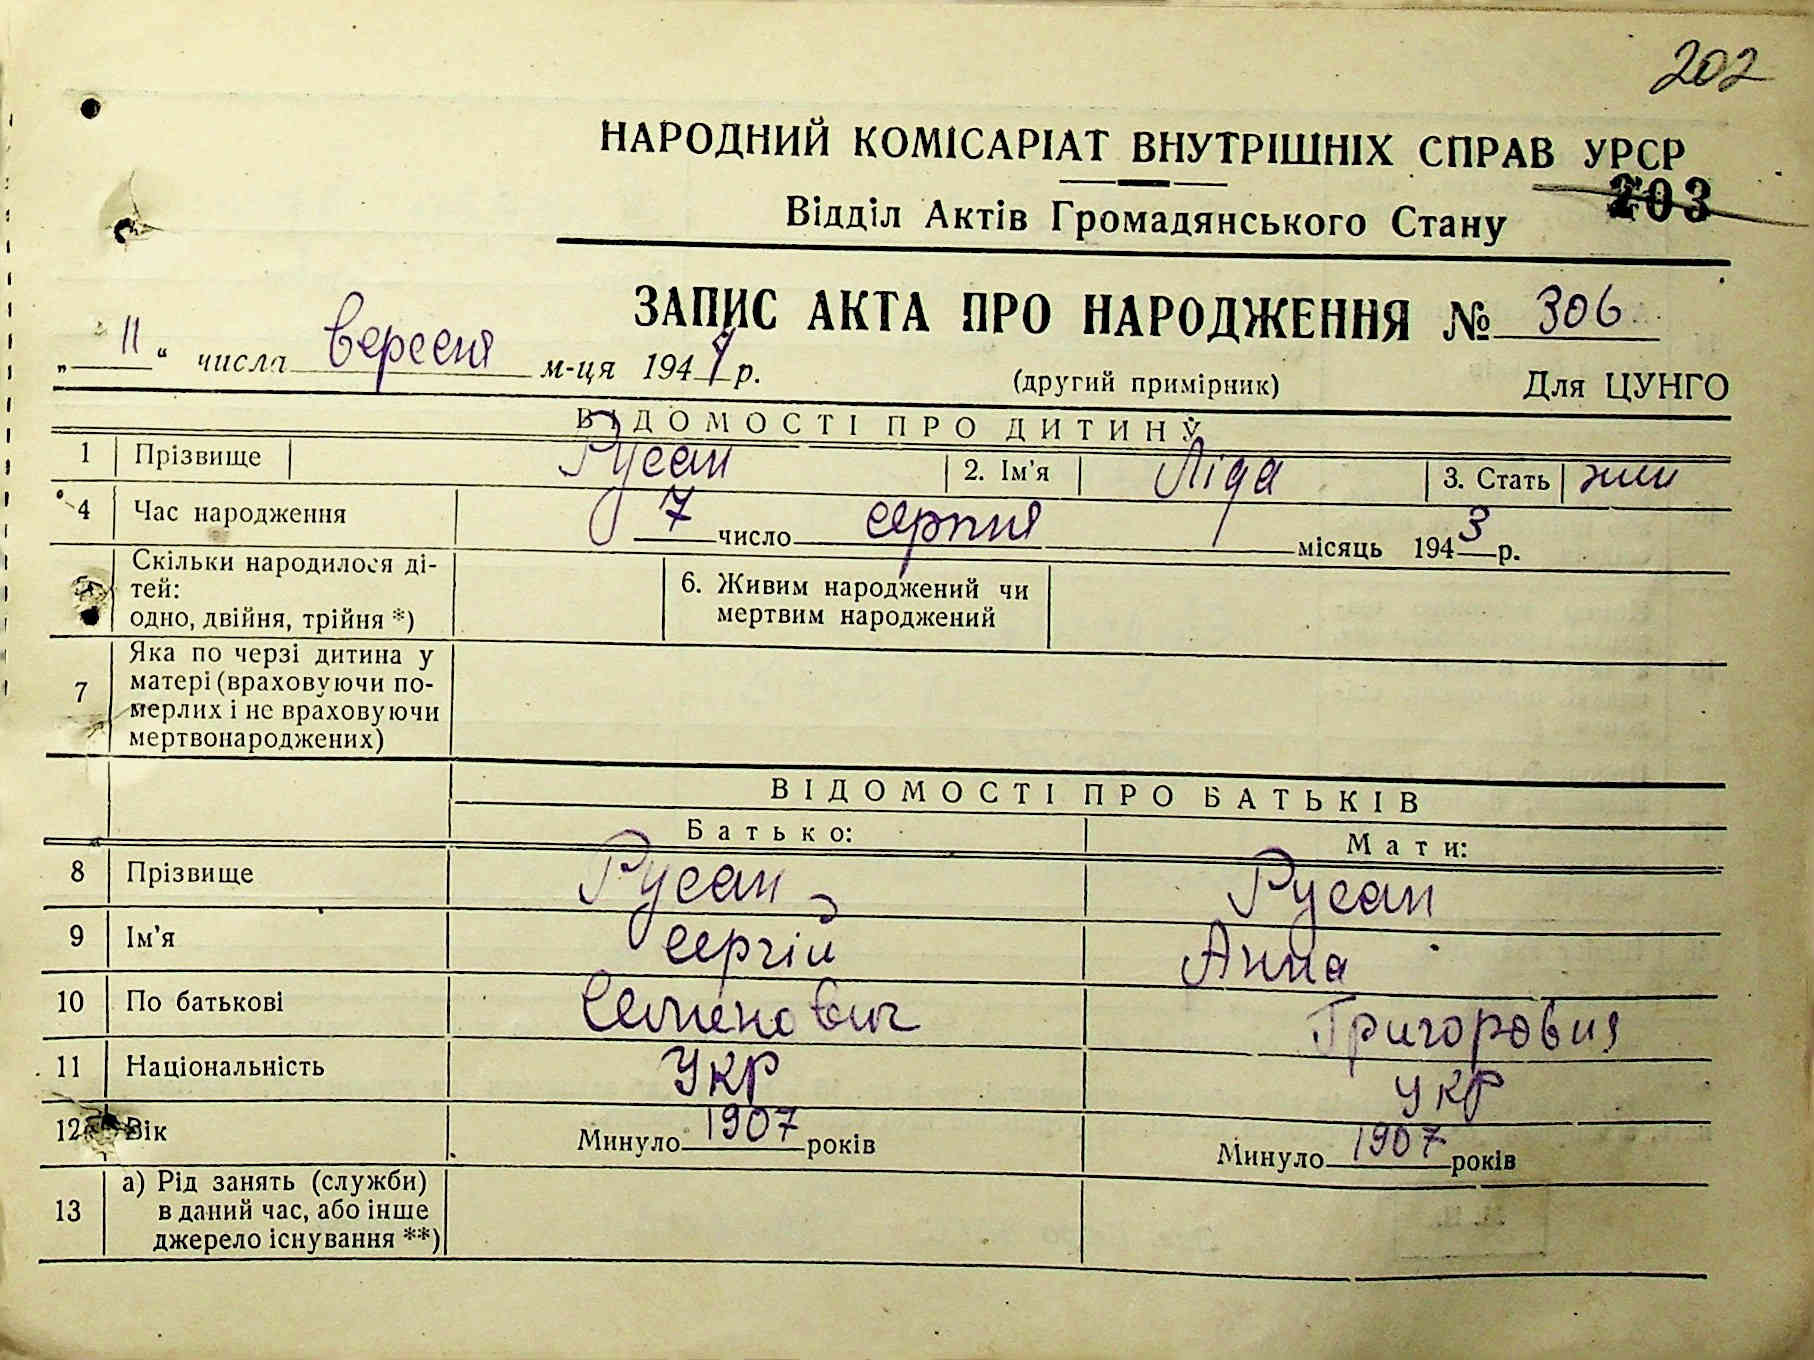 202
НАРОДНИЙ КОМІСАРІАТ ВНУТРІШНІХ СПРАВ УРСР
203
Відділ Актів Громадянського Стану
ЗАПИС АКТА ПРО НАРОДЖЕННЯ № 306
„ 11 “ числа вересня м-ця 1944 р. (другий примірник) Для ЦУНГО
ВІДОМОСТІ ПРО ДИТИНУ
1 Прізвище Русан 2. Ім'я Ліда 3. Стать жін
4 Час народження 7 число серпня місяць 1943 р.
Скільки народилося ді-
тей:
одно, двійня, трійня *)
6. Живим народжений чи
мертвим народжений
7 Яка по черзі дитина у
матері (враховуючи по-
мерлих і не враховуючи
мертвонароджених)
ВІДОМОСТІ ПРО БАТЬКІВ
Батько: Мати:
8 Прізвище Русан Русан
9 Ім'я Сергій Анна
10 По батькові Семенович Григоровня
11 Національність УКР УКР
12 Вік Минуло 1907 років Минуло 1907 років
13 а) Рід занять (служби)
в даний час, або інше
джерело існування **)